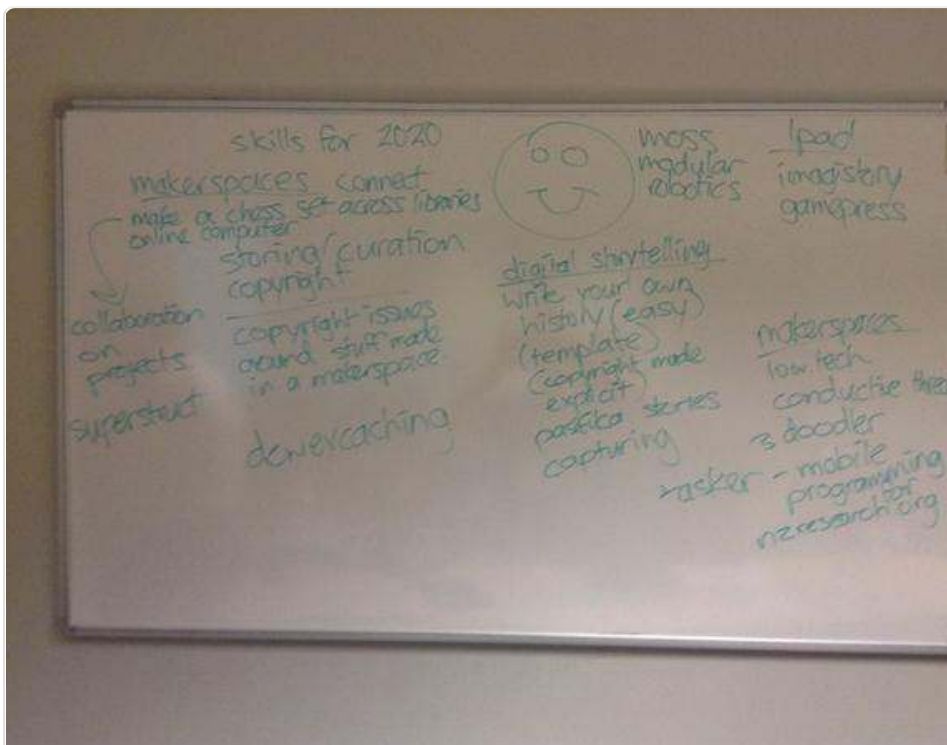 skills for 2020
makerspaces connect
make a chess set across libraries
online computer
storing/curation
copyright
collaboration
on
projects
superstruct
copyright issues
around stuff made
in a makerspace
dewercaching
moss
modular
robotics
ipad
imagistory
gamepress
digital storytelling
write your own
history (easy)
(template)
(copyright made
explicit)
pasfika stories
capturing
makerspaces
low tech
conductive
3 doodler
- mobile
programming
for
nzresearch.org